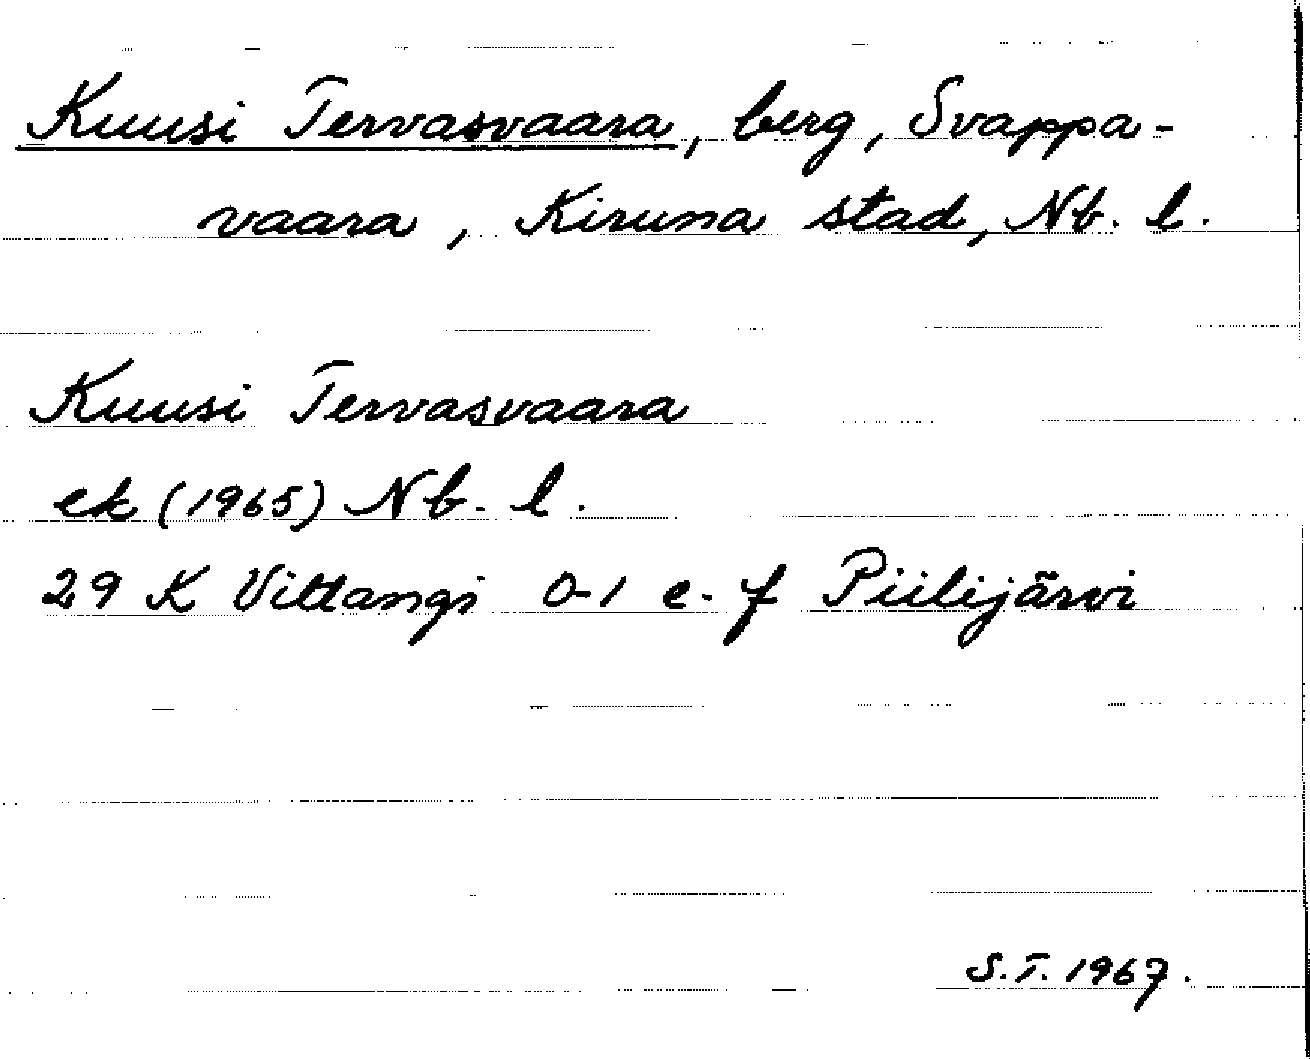 Kuusi Tervasvaara, berg, Svappa-
vaara, Kiruna stad, Nb. l.
Kuusi Tervasvaara
ek (1965) Nb. l.
29 K Vittangi 0-1 e-f Piilijärvi
S.T. 1967.